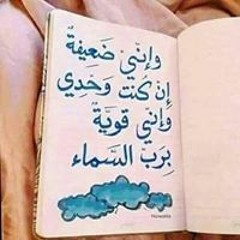 وَإِنّنِيْ ضَعِيفةٌ
إِن كُنت وَحْدِي
وَإنّني قَويّةٌ
بِرَبّ السَّماء